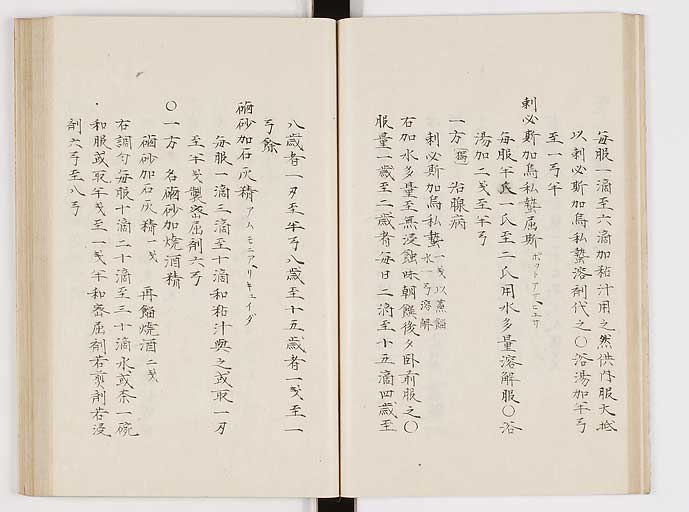 每服一滴至六滴加粘汁用之然供内服大抵
以剌必斯加烏私蟄溶剤代之〇浴湯加半弓
至一弓半
剌必斯加烏私蟄屈斯
每服半氏一氏至二氏用水多量溶解服〇浴
湯加二戔至半弓
一方 治腺病
剌必斯加烏私蟄 一戔以蒸餾水一弓溶解
右加水多量至無浸蝕味朝饌後夕卧前服之〇
服量一歳至二歳者每日二滴至十五滴四歳至
八歳者一刃至半弓八歳至十五歳者一戔至一
弓餘
磠砂加石灰精 アムモニア、リキュイダ
每服一滴三滴至十滴和粘汁與之或取一刃
至半戔製密屈剤六弓
〇一方 名磠砂加焼酒精
磠砂加石灰精 一戔 再餾焼酒 二戔
右調匀每服十滴二十滴至三十滴水或茶一碗
和服或取半戔至一戔半和密屈剤若煎剤若浸
剤六弓至八弓